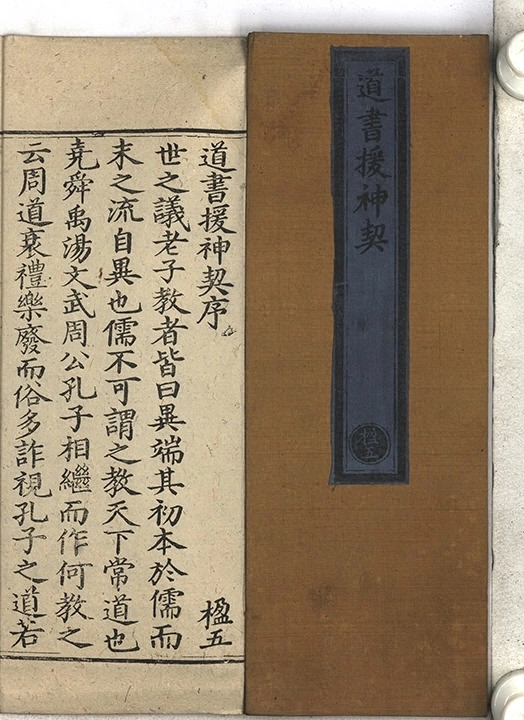 道書援神契
楹五
道書援神契序
楹五
世之議老子教者皆曰異端其初本於儒而
末之流自異也儒不可謂之教天下常道也
堯舜禹湯文武周公孔子相繼而作何教之
云周道衰禮樂廢而俗多詐視孔子之道若